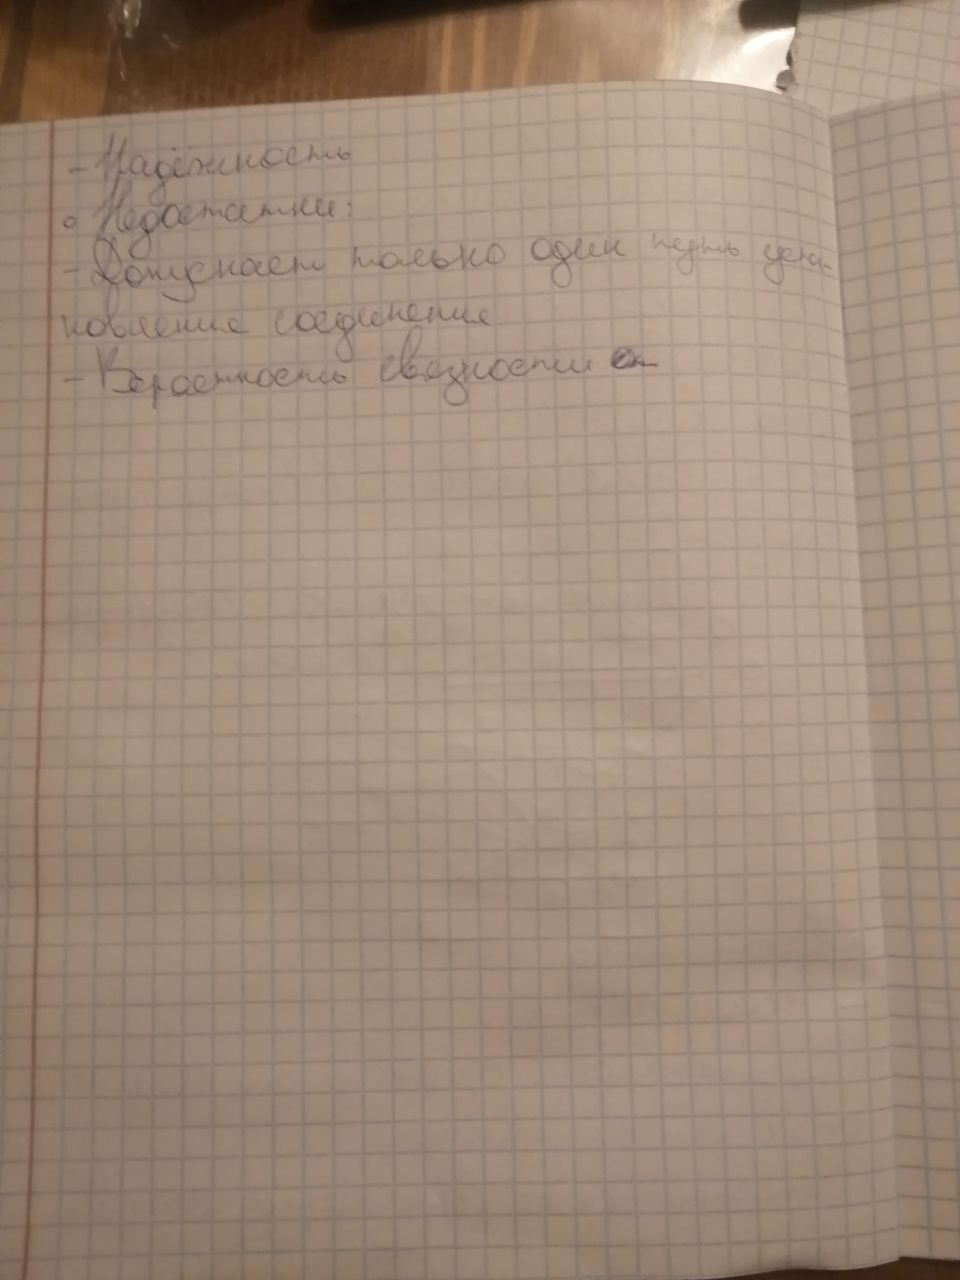 - Надёжность
• Недостатки:
- Допускает только один путь уста-
новления соединения
- Вероятность связности